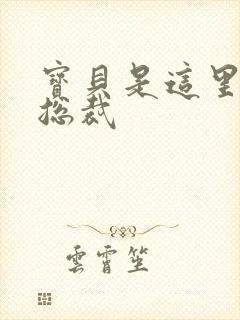 寶貝是這里
總裁
雲霄笙